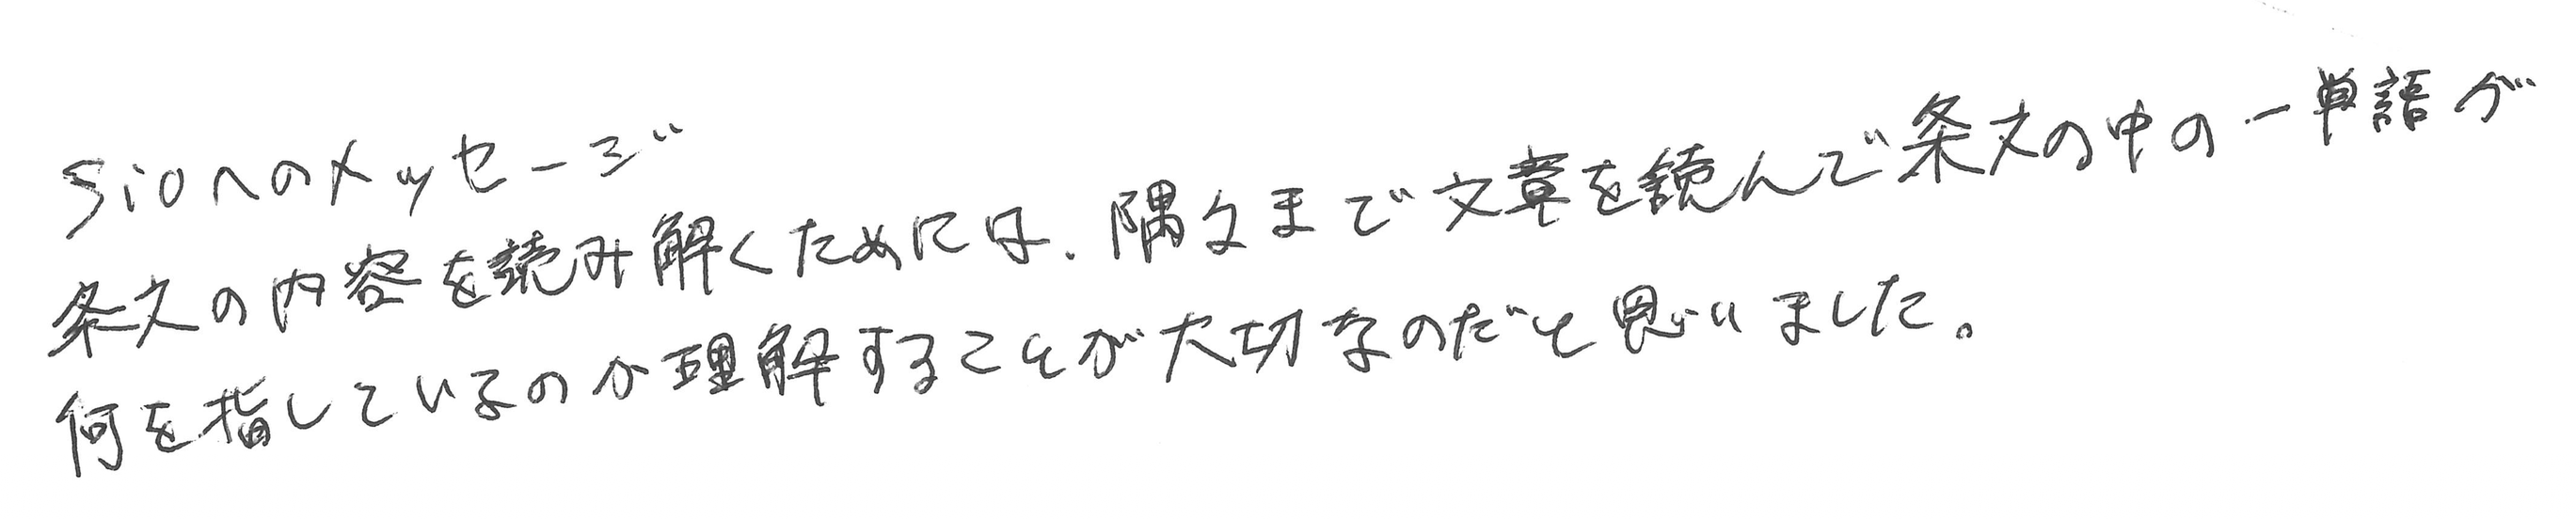 Sioへのメッセージ
条文の内容を読み解くためには、隅々まで文章を読んで条文の中の一単語が
何を指しているのか理解することが大切なのだと思いました。